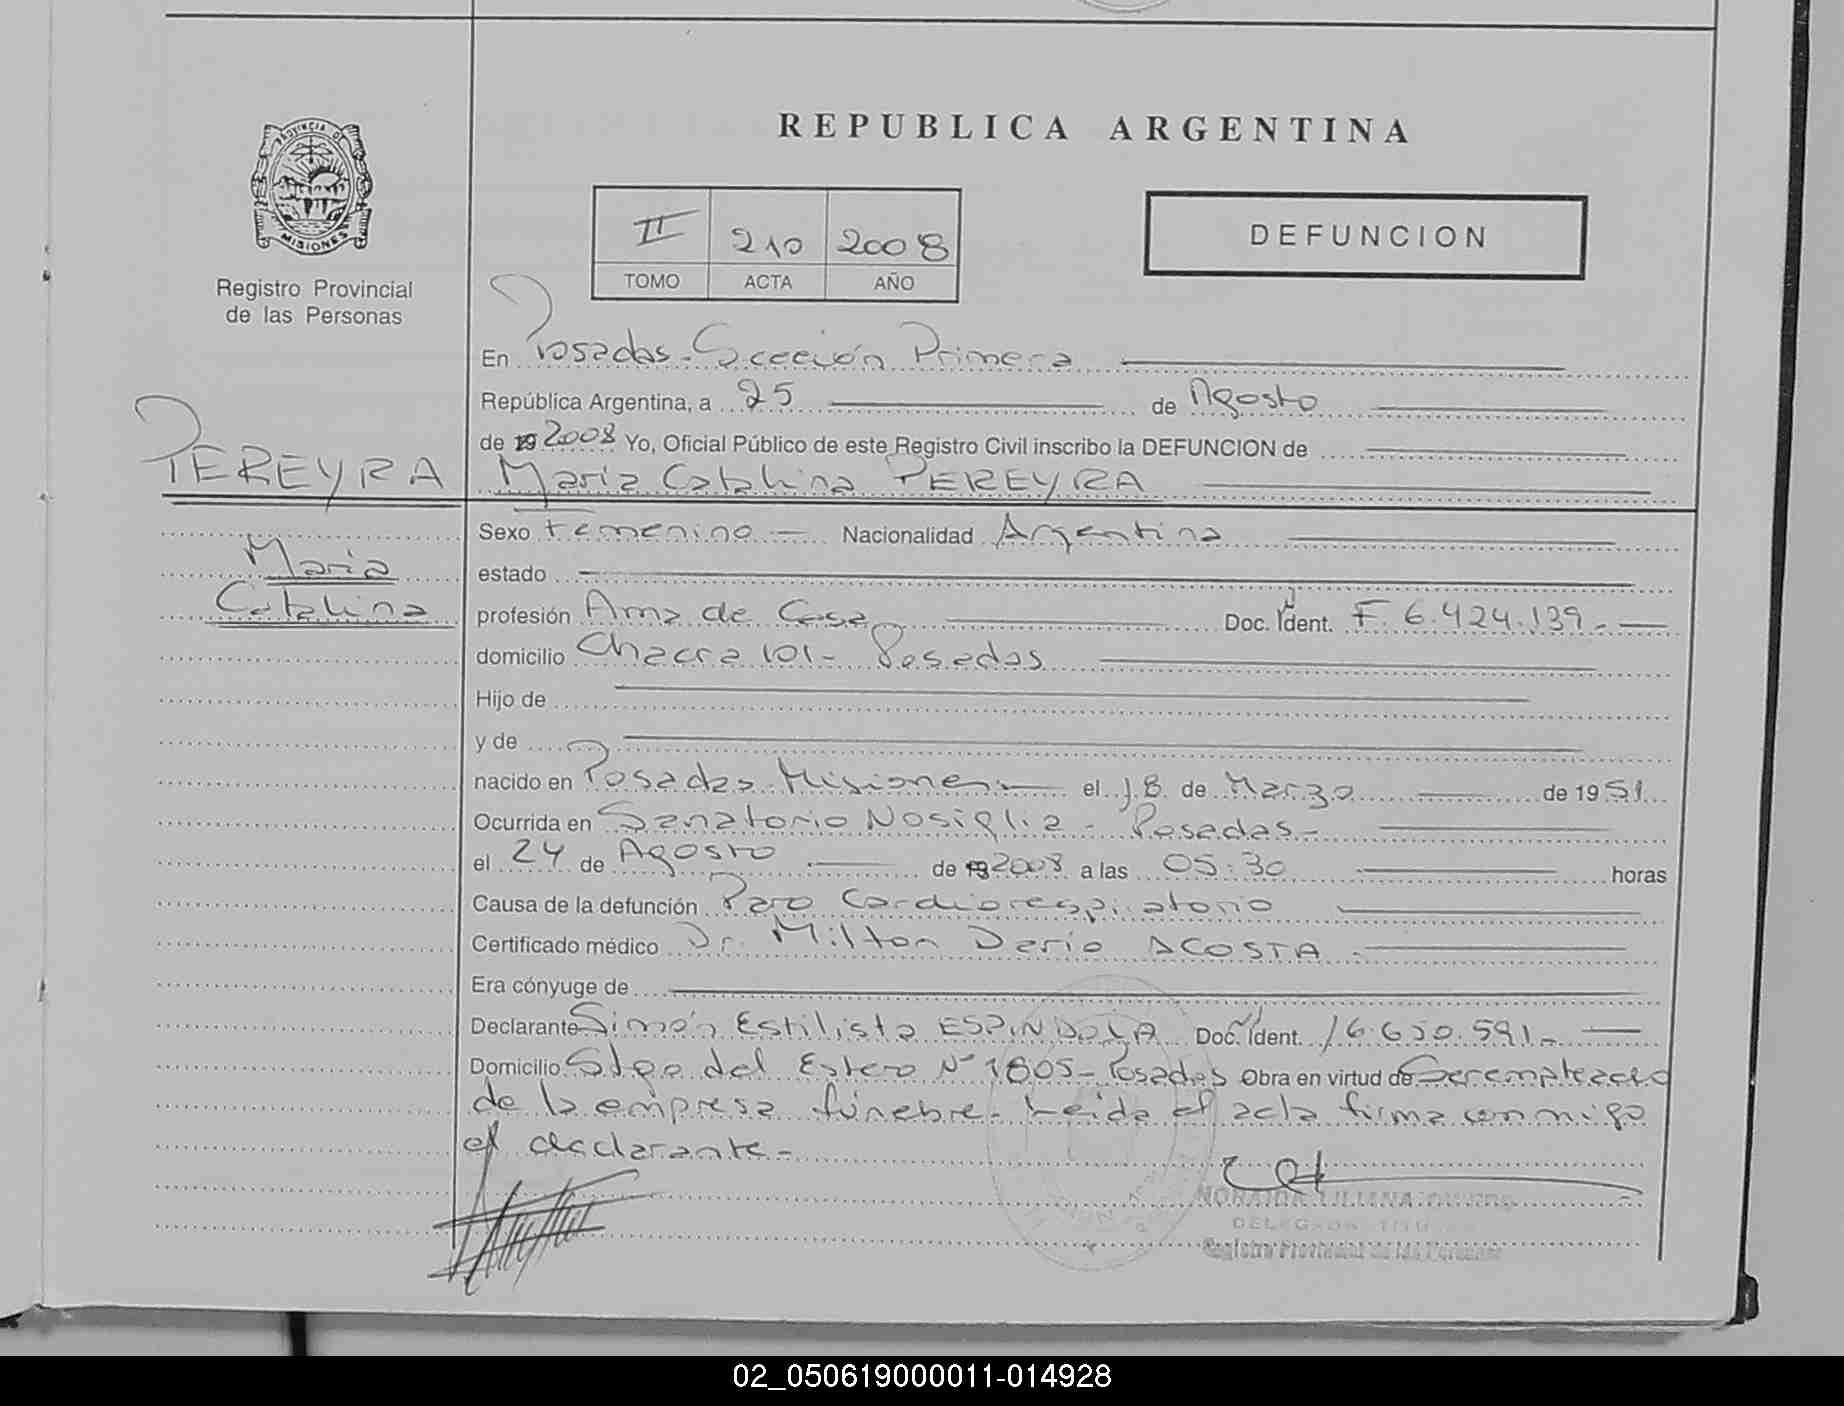 REPUBLICA ARGENTINA
PROVINCIA DE
MISIONES
Registro Provincial
de las Personas
II 210 2008
TOMO ACTA AÑO
DEFUNCION
En Posadas - Sección Primera
República Argentina, a 25 de Agosto
de 19 2008 Yo, Oficial Público de este Registro Civil inscribo la DEFUNCION de
PEREYRA
María Catalina PEREYRA
Sexo Femenino - Nacionalidad Argentina
María
Catalina
estado
profesión Ama de Casa Doc. Ident. F 6.424.139.-
domicilio Chacra 101 - Posadas
Hijo de
y de
nacido en Posadas Misiones - el 18 de Marzo de 1951
Ocurrida en Sanatorio Nosiglia - Posadas -
el 24 de Agosto de 19 2008 a las 05:30 horas
Causa de la defunción Paro Cardiorespiratorio
Certificado médico Dr. Milton Dario ACOSTA -
Era cónyuge de
Declarante Simón Estilisto ESPINDOLA Doc. Ident. 16.650.591.-
Domicilio Stgo del Estero Nº 1805 - Posadas Obra en virtud de Ser empleado
de la empresa fúnebre - Leida el acta firma conmigo
el declarante -
DELEGADA TITULAR
Registro Provincial de las Personas
02_050619000011-014928